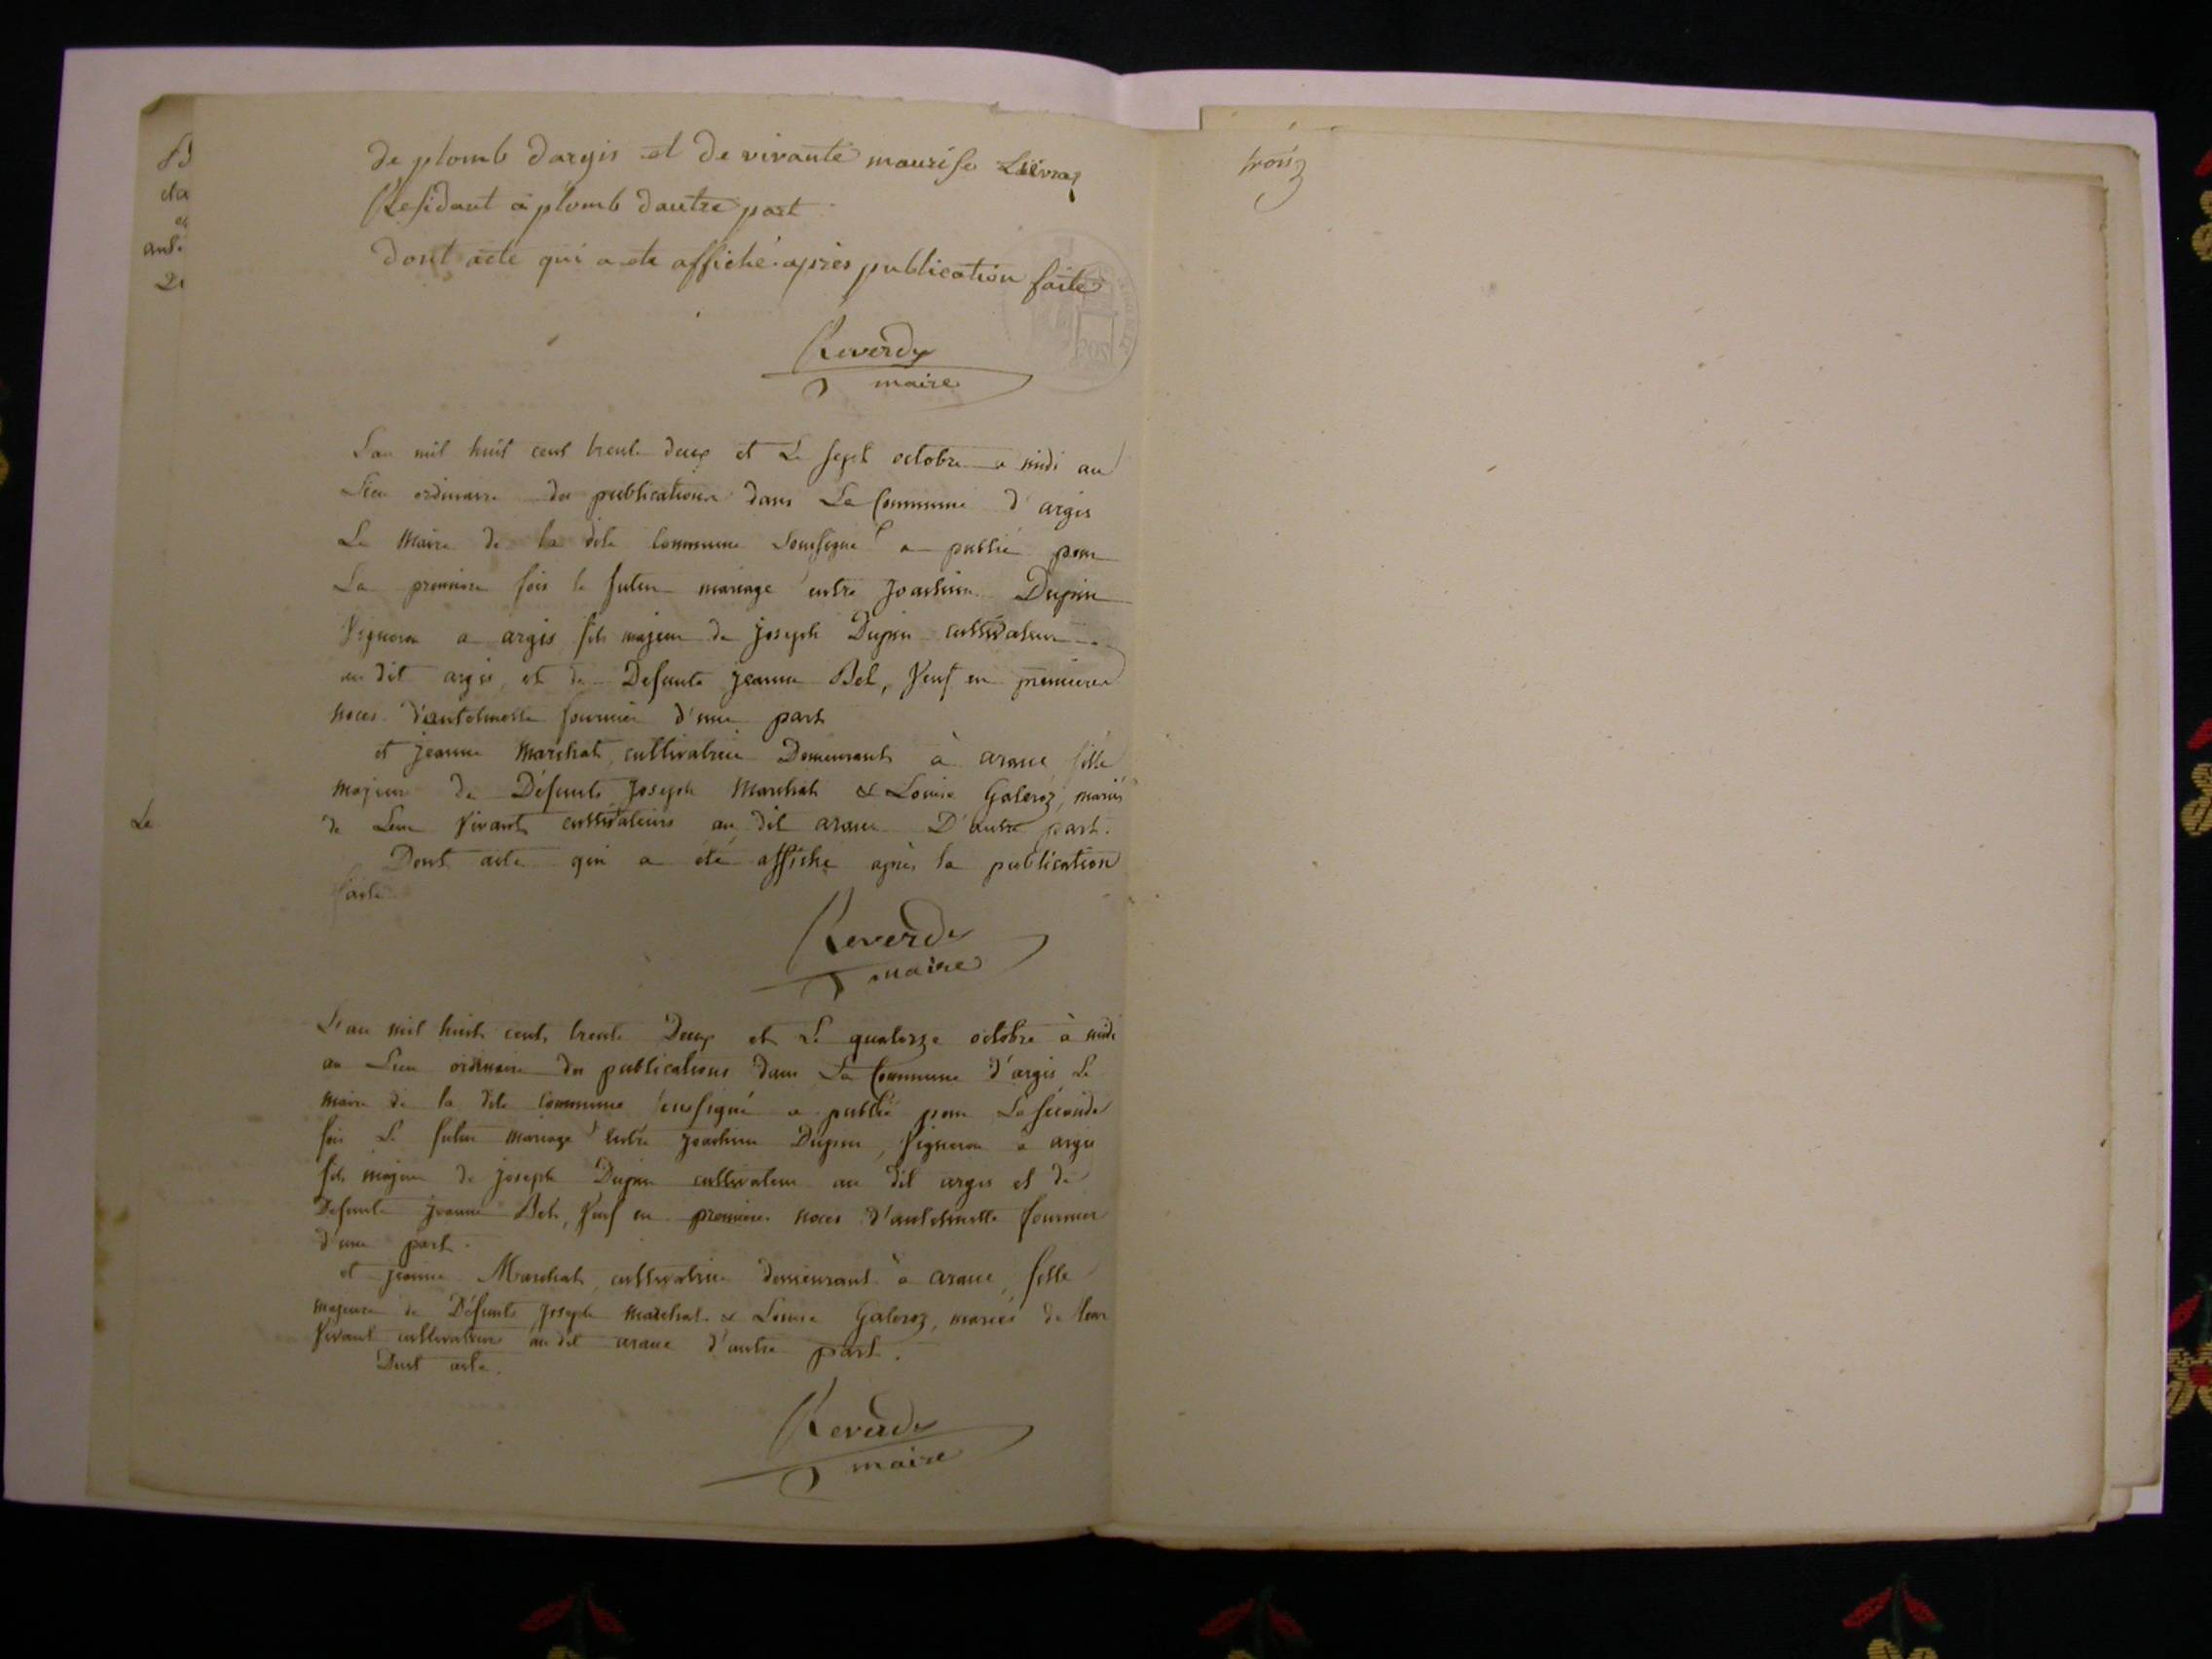 de plomb dargis et de vivante maurise Liévraz
Residant a plomb dautre part
Dont acte qui a ete affiché après publication faite
Reverdy
maire
L'an mil huit cent trente deux et Le sept octobre a midi au
Lieu ordinaire des publications dans La Commune d'argis
Le Maire de la dite Commune Soussigné a publié pour
La premiere fois le futur mariage entre Joachim Dupin
Vigneron a argis fils majeur de Joseph Dupin cultivateur
au dit argis, et de Defunte Jeanne Bel, Veuf en premieres
noces d'antoinette fournier d'une part
et Jeanne Marchat, cultivatrice Demeurant à aranc fille
majeure de Défunts Joseph Marchat & Louise Galeroz, mariés
de Leur Vivant cultivateurs au dit aranc D'autre part.
Dont acte qui a été affiché après la publication
faite
Reverdy
maire
L'an mil huit cent trente Deux et Le quatorze octobre à midi
au Lieu ordinaire des publications dans La Commune d'argis Le
maire de la dite Commune soussigné a publié pour La seconde
fois Le futur mariage entre Joachim Dupin, Vigneron à argis
fils majeur de Joseph Dupin cultivateur au dit argis et de
Defunte Jeanne Bel, Veuf en premieres noces d'antoinette fournier
d'une part.
et Jeanne Marchat, cultivatrice demeurant à aranc, fille
majeure de Défunts Joseph Marchat & Louise Galeroz, mariés de leur
Vivant cultivateurs au dit aranc d'autre part.
Dont acte.
Reverdy
maire
Le
trois